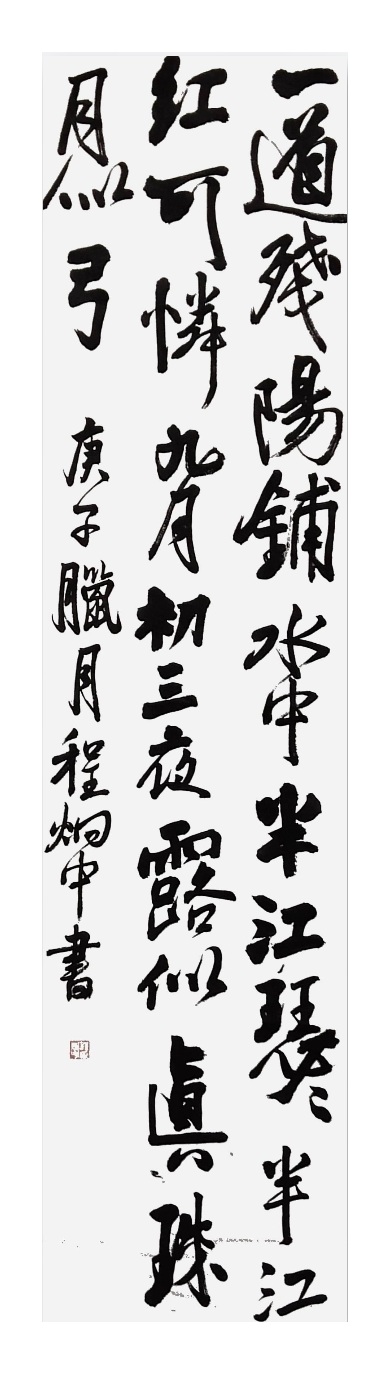 一道殘陽鋪水中半江瑟瑟半江
紅可憐九月初三夜露似真珠
月似弓
庚子臘月程炯中書